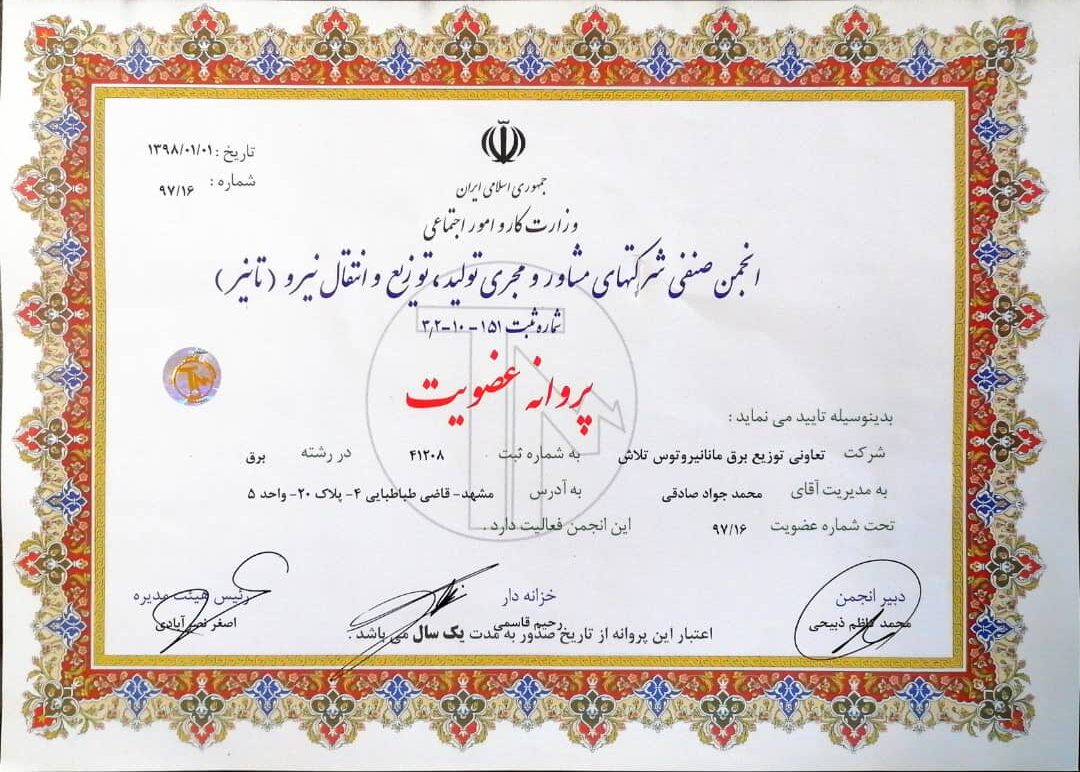 تاریخ : ۱۳۹۸/۰۱/۰۱
شماره : ۹۷/۱۶
جمهوری اسلامی ایران
وزارت کار و امور اجتماعی
انجمن صنفی شرکتهای مشاور و مجری تولید، توزیع و انتقال نیرو (تانیر)
شماره ثبت ۱۵۱ - ۱۰ - ۳٫۲
پروانه عضویت
بدینوسیله تایید می نماید :
شرکت تعاونی توزیع برق مانانیروتوس تلاش به شماره ثبت ۴۱۲۰۸ در رشته برق
به مدیریت آقای محمد جواد صادقی به آدرس مشهد- قاضی طباطبایی ۴- پلاک ۲۰- واحد ۵
تحت شماره عضویت ۹۷/۱۶ این انجمن فعالیت دارد .
دبیر انجمن خزانه دار رئیس هیئت مدیره
محمد کاظم ذبیحی رحیم قاسمی اصغر نصرآبادی
اعتبار این پروانه از تاریخ صدور به مدت یک سال می باشد .